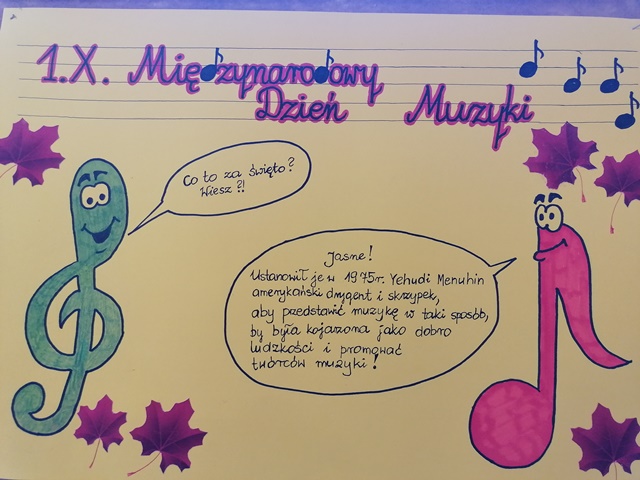 1.X. Międzynarodowy
Dzień Muzyki
Co to za święto?
Wiesz?!
Jasne!
Ustanowił je w 1975r. Yehudi Menuhin
amerykański dyrygent i skrzypek,
aby przedstawić muzykę w taki sposób,
by była kojarzona jako dobro
ludzkości i promować
twórców muzyki!